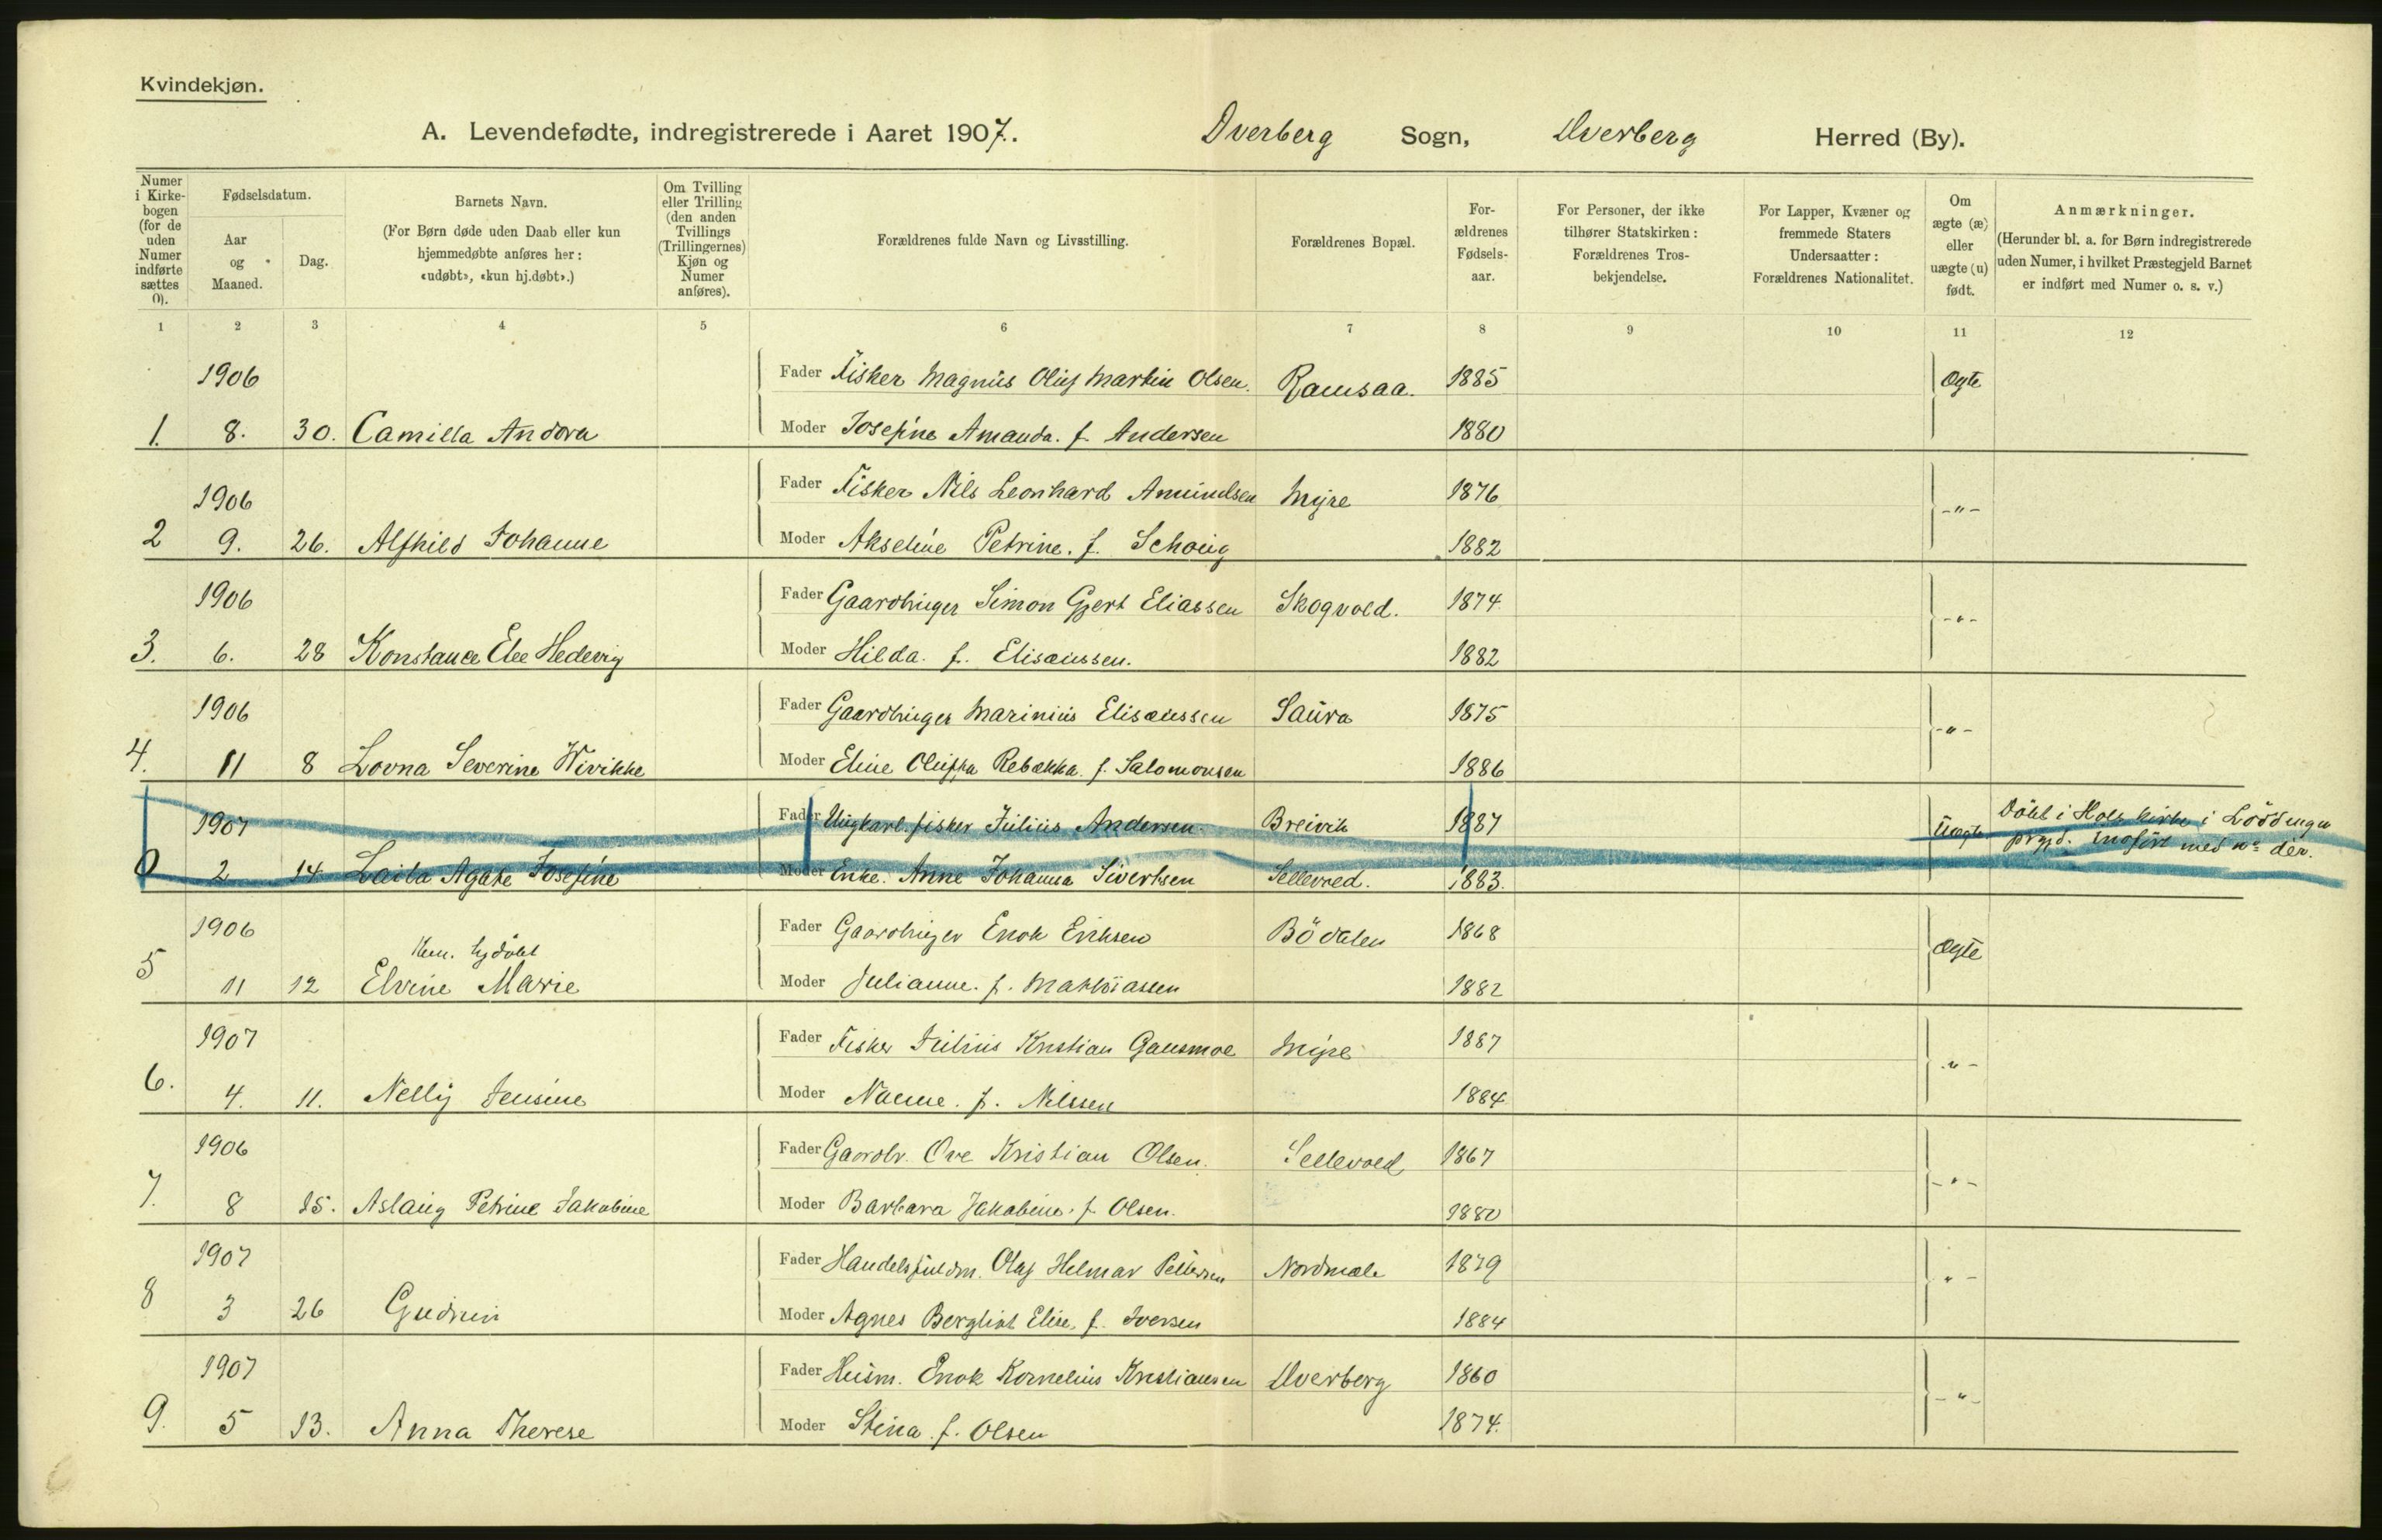 Kvindekjøn.
A. Levendefødte, indregistrerede i Aaret 1907. Dverberg Sogn, Dverberg Herred (By).
Numer i Kirkebogen (for de uden Numer indførte sættes 0).
Fødselsdatum.
Aar og Maaned.
Dag.
Barnets Navn.
(For Børn døde uden Daab eller kun hjemmedøbte anføres her: «udøbt», «kun hj.døbt».)
Om Tvilling eller Trilling (den anden Tvillings (Trillingernes) Kjøn og Numer anføres).
Forældrenes fulde Navn og Livsstilling.
Forældrenes Bopæl.
Forældrenes Fødselsaar.
For Personer, der ikke tilhører Statskirken: Forældrenes Trosbekjendelse.
For Lapper, Kvæner og fremmede Staters Undersaatter: Forældrenes Nationalitet.
Om ægte (æ) eller uægte (u) født.
Anmærkninger.
(Herunder bl. a. for Børn indregistrerede uden Numer, i hvilket Præstegjeld Barnet er indført med Numer o. s. v.)
1 2 3 4 5 6 7 8 9 10 11 12
1906 Fader Fisker Magnus Oluf Martin Olsen. Ramsaa. 1885 Ægte
1. 8. 30. Camilla Andora Moder Josefine Amanda. f. Andersen 1880
1906 Fader Fisker Nils Leonhard Amundsen Myre 1876 -"-
2 9. 26. Alfhild Johanne Moder Akseline Petrine. f. Schoug 1882
1906 Fader Gaardbruger Simon Gjert Eliassen Skogvold. 1874. -"-
3. 6. 28 Konstance Elee Hedevig Moder Hilda. f. Elisæussen. 1882
1906 Fader Gaardbruger Marinius Elisæussen Saura 1875 -"-
4. 11 8 Lovna Severine Wivikke Moder Eline Oluffa Rebækka. f. Salomonsen 1886
1907 Fader Ungkarl. fisker Julius Andersen. Breivik 1887 Uægte Döbt i Hols kirke i Lödingen
0 2 14 Laila Agate Josefine Moder Enke. Anne Johanna Sivertsen Sellevold. 1883. prgjd. indført med no der.
1906 Fader Gaardbruger Enok Eriksen Bödalen 1868 Ægte
Kun. hj döbt
5 11 12 Elvine Marie Moder Julianne. f. Mathiassen 1882
1907 Fader Fisker Julius Kristian Gausmoe Myre 1887 -"-
6. 4. 11. Nelly Jensine Moder Nanne. f. Nilssen 1884
1906 Fader Gaardbr. Ove Kristian Olsen. Sellevold 1867 -"-
7. 8 15. Aslaug Petrine Jakobine Moder Barbara Jakobine. f. Olsen. 1880
1907 Fader Handelsfuldm. Olaf Helmar Pettersen Nordmele 1879 " -
8 3 26 Gudrun Moder Agnes Bergliot Elise. f. Iversen 1884
1907 Fader Husm. Enok Kornelius Kristiansen Dverberg 1860 -"-
9. 5 13. Anna Therese Moder Stina. f. Olsen 1874.